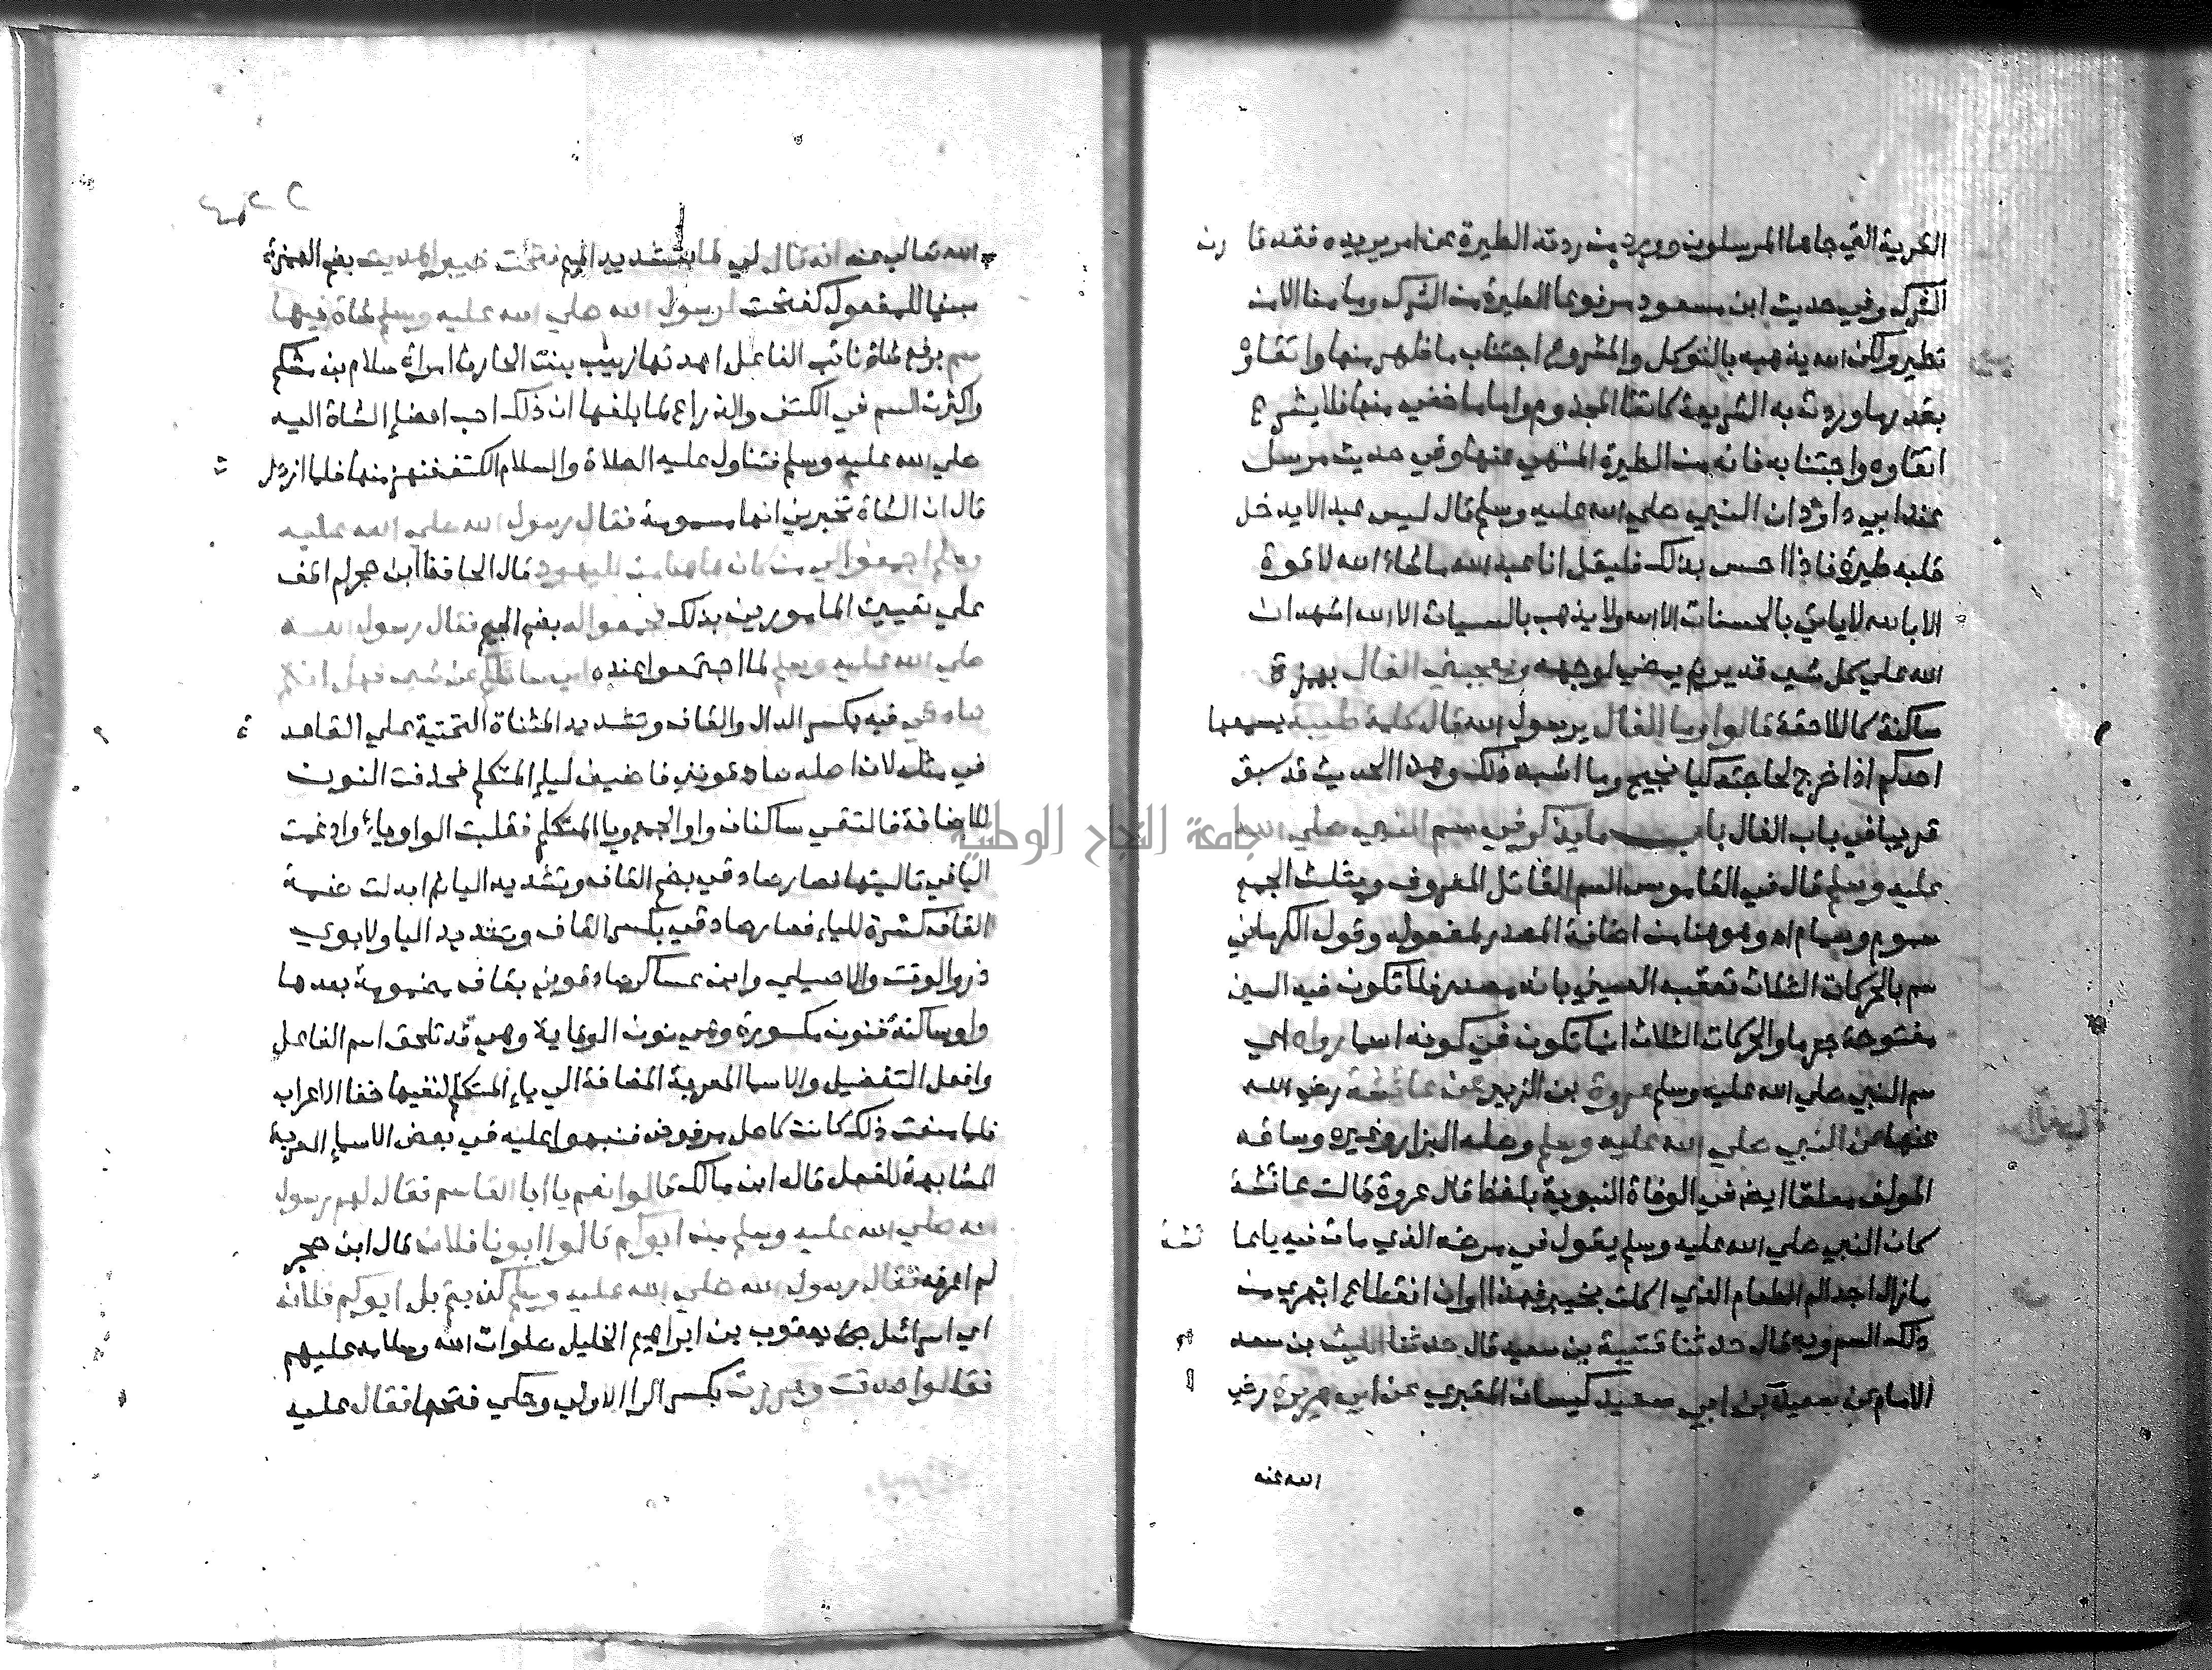 الغريبة التي جاءها المرسلون وورد من ردته الطيرة عن امر يريده فقد قا رن
الشرك وفي حديث ابن مسعود مرفوعا الطيرة من الشرك وما منا الا من
تطير ولكن الله يذهبه بالتوكل والمشروع اجتناب ما ظهر منها واتقاؤ
بقدر ما وردت به الشريعة كاتقا المجذوم واما ما خفي منها فلا يشرع
اتقاوه واجتنابه فانه من الطيرة المنهي عنها وفي حديث مرسل
عند ابي داود ان النبي صلي الله عليه وسلم قال ليس عبد الا يدخل
قلبه طيرة فاذا احس بذلك فليقل انا عبد الله ما شاء الله لا قوة
الا بالله لا ياتي بالحسنات الا الله ولا يذهب بالسيات الا الله اشهد ان
الله علي كل شي قدير ثم يمضي لوجهه ويعجبني الفال بهمزة
ساكنة كاللاحقة قالوا وما الفال يرسول الله قال كلمة طيبة يسمعها
احدكم اذا خرج لحاجته كيا نجيح وما اشبه ذلك وهذا الحديث قد سبق
قريبا في باب الفال باب ما يذكر في سم النبي صلي الله
عليه وسلم قال في القاموس السم القاتل المعروف ويثلث الجمع
سموم وسمام اه وهو هنا من اضافة المصدر لمفعوله وقول الكرماني
سم بالحركات الثلاث تعقبه العيني بانه مصدر فلا تكون فيه السين
مفتوحة جزما والحركات الثلاث انما تكون في كونه اسما رواه اي
سم النبي صلي الله عليه وسلم عروة بن الزبير عن عائشة رضي الله
عنها عن النبي صلي الله عليه وسلم وصله البزار وغيره وساقه
المولف معلقا ايض في الوفاة النبوية بلفظ قال عروة قالت عائشة
كان النبي صلي الله عليه وسلم يقول في مرضه الذي مات فيه يا عا ئشة
ما زال اجد الم الطعام الذي اكلت بخيبر فهذا اوان انقطاع ابهري من
ذلك السم وبه قال حدثنا قتيبة بن سعيد قال حدثنا الليث بن سعد
الامام عن سعيد بن ابي سعيد كيسان المقبري عن ابي هريرة رضي
الله عنه
الله تعالي عنه انه قال لي لما بتشديد الميم فتحت خيبر اهديت بضم الهمزة
مبنيا للمفعول كفتحت لرسول الله صلي الله عليه وسلم شاة فيها
سم برفع شاة نائب الفاعل اهدتها زينب بنت الحارث امراة سلام بن مشكم
واكثرت السم في الكتف والذراع لما بلغها ان ذلك احب اعضا الشاة اليه
صلي الله عليه وسلم فتناول عليه الصلاة والسلام الكتف فنهز منها فلما ازدر
قال ان الشاة تخبرني انها مسمومة فقال رسول الله صلي الله عليه
وسلم اجمعوا لي من كان هاهنا من اليهود قال الحافظ ابن حجر لم اقف
علي تعيين المامورين بذلك فجمعوا له بضم الجيم فقال رسول الله
صلي الله عليه وسلم لما اجتمعوا عنده اني سائلكم عن شي فهل انتم
صادقي فيه بكسر الدال والقاف وتشديد المثناة التحتية علي القاعد ة
في مثله لان اصله صادقونني فاضيف لياء المتكلم فحذفت النون
للاضافة فالتقي ساكنان واو الجمع ويا المتكلم فقلبت الواو ياء وادغمت
اليا في تاليتها فصار صادقي بضم القاف وتشديد اليا ثم ابدلت ضمة
القاف كسرة للياء فصار صادقي بكسر القاف وتشديد اليا ولابوي
ذر والوقت والاصيلي وابن عساكر صادقوني بقاف مضمومة بعدها
واو ساكنة فنون مكسورة وهي نون الوقاية وهي قد تلحق اسم الفاعل
وافعل التفضيل والاسما المعربة المضافة الي ياء المتكلم لتقيها خفا الاعراب
فلما منعت ذلك كانت كاصل مرفوض فنبهوا عليه في بعض الاسماء المعربة
المشابهة للفعل قاله ابن مالك قالوا نعم يا ابا القاسم فقال لهم رسول
الله صلي الله عليه وسلم من ابوكم قالوا ابونا فلان قال ابن حجر
لم اعرفه فقال رسول الله صلي الله عليه وسلم كذبتم بل ابوكم فلان
اي اسرائيل يعقوب بن ابراهيم الخليل صلوات الله وسلامه عليهم
فقالوا صدقت وبررت بكسر الرا الاولي وحكي فتحها فقال عليه
جامعة النجاح الوطنية